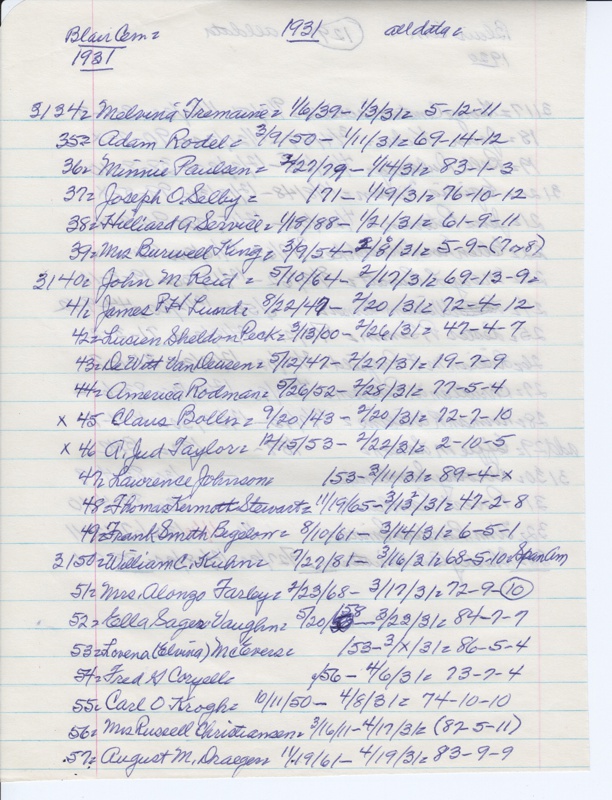 Blair Cem= 1931 all data=
1931
3134= Melvina Tremaine= 1/6/39- 1/3/31= 5-12-11
35= Adam Rodel= 3/9/50- 1/11/31= 69-14-12
36= Minnie Paulsen= 2/27/79- 1/14/31= 83-1-3
37= Joseph O. Selby= 171- 1/19/31= 76-10-12
38= Hilliard A Service= 1/18/88- 1/21/31= 61-9-11
39= Mrs Burwell King= 3/9/54- 2/8/31= 5-9-(7 or 8)
3140= John M Reid= 5/10/64- 2/17/31= 69-13-9=
41= James P.H. Lund= 8/22/47- 2/20/31= 72-4-12
42= Lucien Sheldon Peck= 3/13/00- 2/26/31= 47-4-7
43= DeWitt VanDeusen= 5/12/47- 2/27/31= 19-7-9
44= America Rodman= 5/26/52- 2/28/31= 77-5-4
x 45 Claus Bolln= 9/20/43- 2/20/31= 72-7-10
x 46 A. Jud Taylor= 12/15/53- 2/22/31= 2-10-5
47= Lawrence Johnson= 153- 3/11/31= 89-4-x
48= Thomas Kermott Stewart= 11/19/65- 3/13/31= 47-2-8
49= Frank Smith Bigelow= 8/10/61- 3/14/31= 6-5-1
3150= William C. Kuhn= 7/27/81- 3/16/31= 68-5-10= Span Am
51= Mrs. Alonzo Farley= 2/23/68- 3/17/31= 72-9-10
52= Ella Sager Vaughn= 5/20/58- 3/23/31= 84-7-7
53= Lovena (Elvina) McEvers= 153- 3/x/31= 86-5-4
54= Fred G Coryell= 156- 4/6/31= 73-7-4
55= Carl O Krogh= 10/11/50- 4/8/31= 74-10-10
56= Mrs Russell Christiansen= 3/16/11- 4/17/31= (82-5-11)
57= August M. Draeger= 11/19/61- 4/19/31= 83-9-9